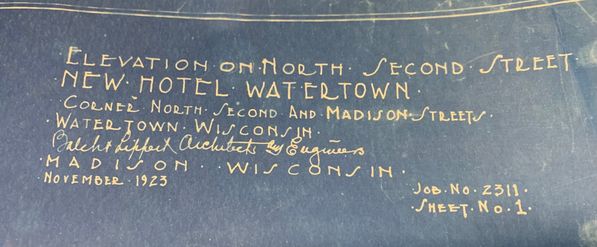 ELEVATION·ON·NORTH·SECOND·STREET·
·NEW·HOTEL·WATERTOWN·
·CORNER·NORTH·SECOND·AND·MADISON·STREETS·
·WATERTOWN·WISCONSIN·
Balch & Lippert Architects & Engineers
·MADISON··WISCONSIN·
·NOVEMBER·1923
JOB·NO·2311·
·SHEET·NO·1·